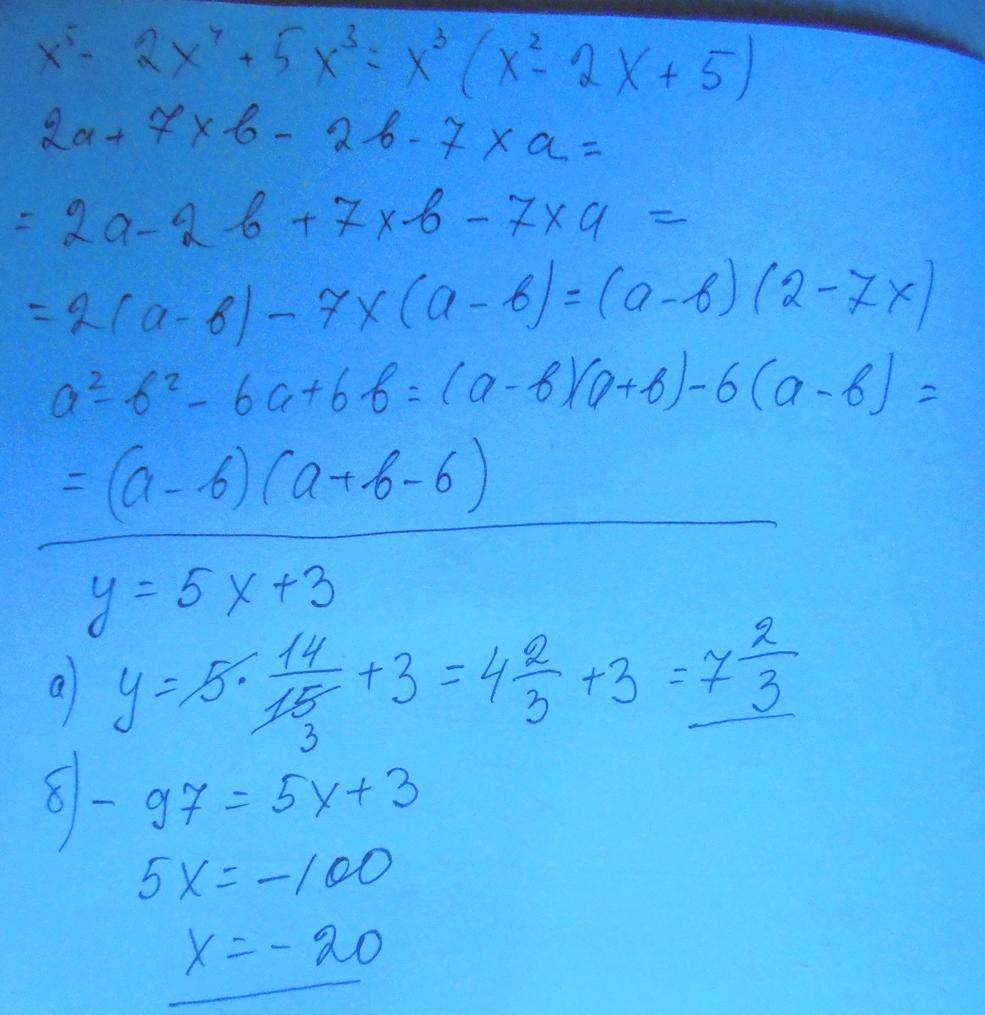 x⁵ - 2x⁴ + 5x³ = x³ (x² - 2x + 5)
2a + 7xв - 2в - 7xa =
= 2a - 2в + 7xв - 7xa =
= 2(a - в) - 7x(a - в) = (a - в)(2 - 7x)
a² - в² - 6a + 6в = (a - в)(a + в) - 6(a - в) =
= (a - в)(a + в - 6)
y = 5x + 3
а) y = 5 · 14/15 3 + 3 = 4 2/3 + 3 = 7 2/3
б) - 97 = 5x + 3
5x = -100
x = - 20